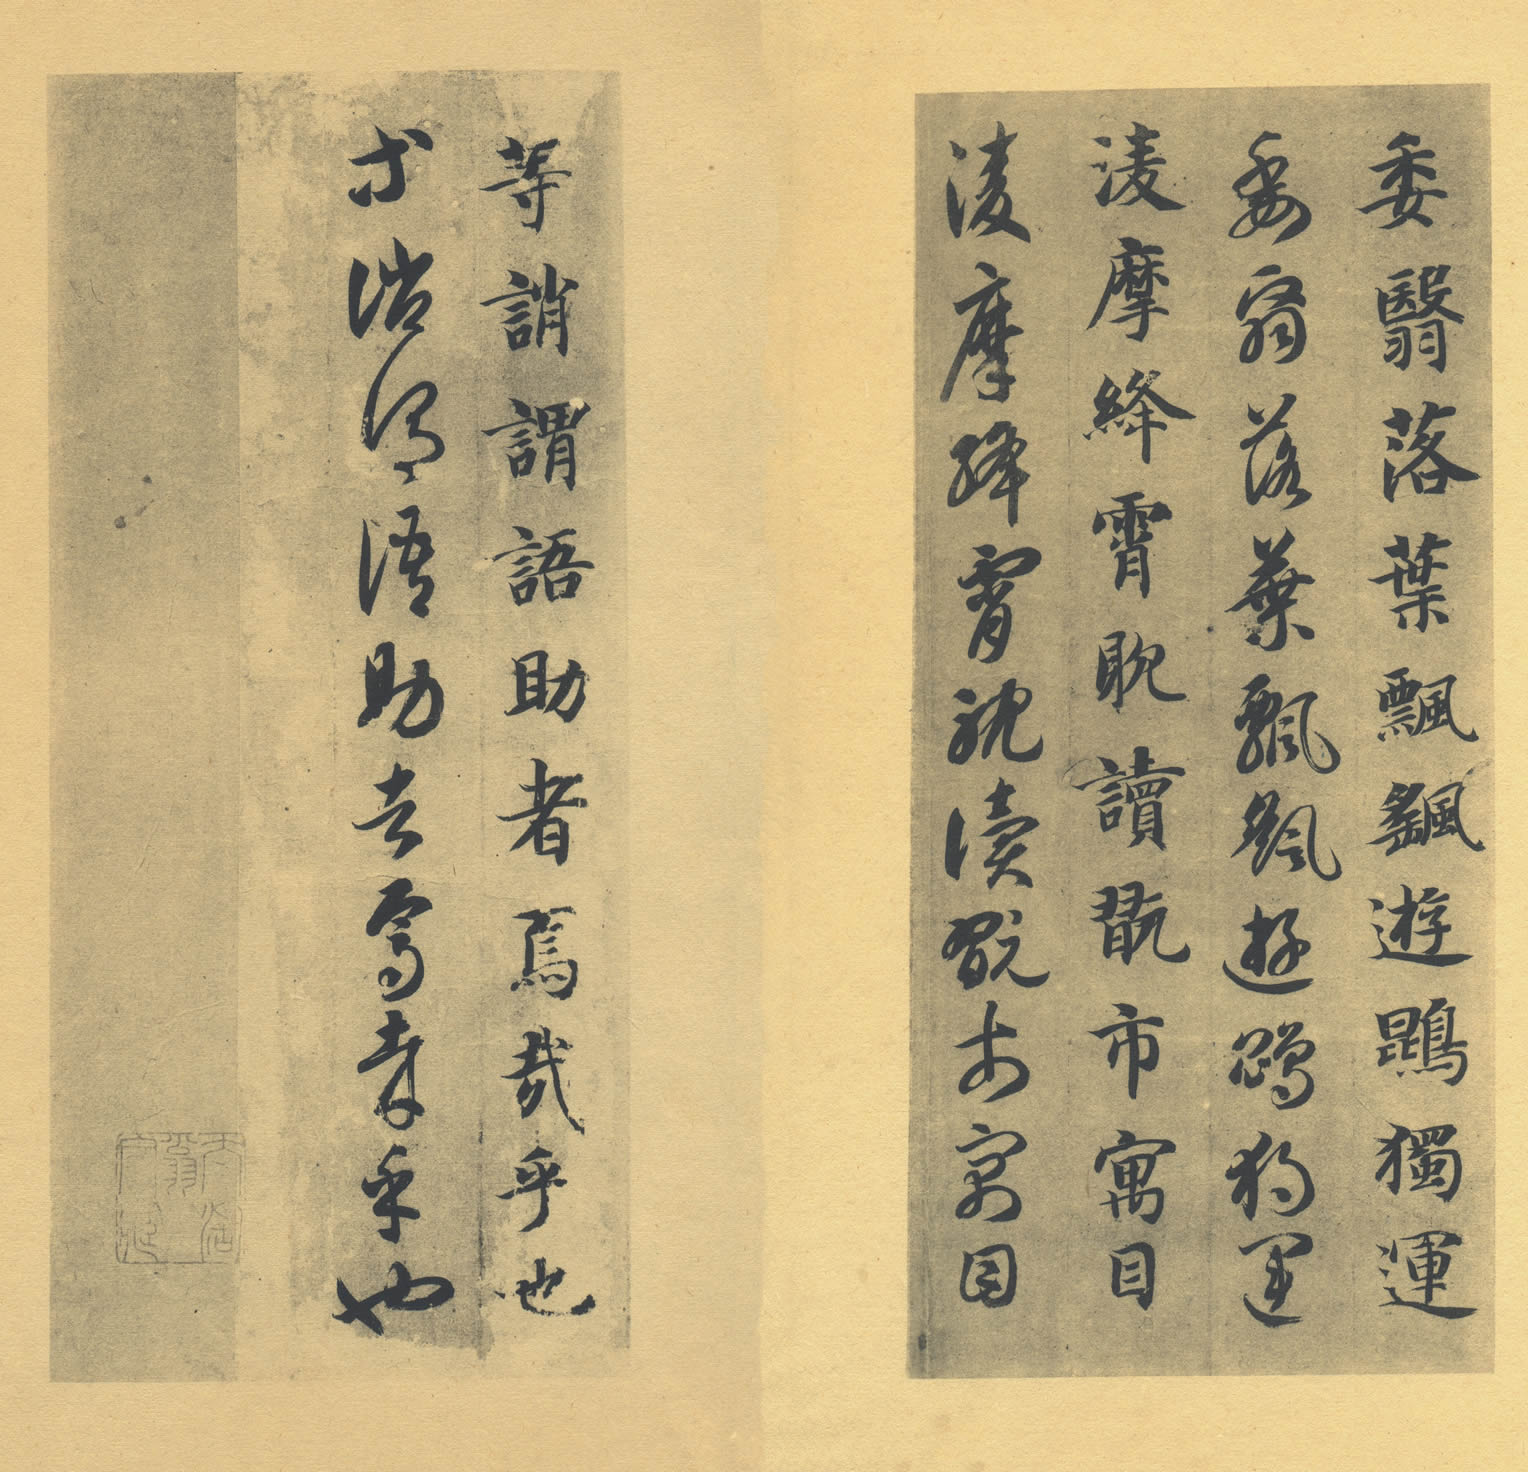 委翳落葉飄飖遊鵾獨運
委翳落葉飄飖遊鵾獨運
淩摩絳霄耽讀翫市寓目
淩摩絳霄耽讀翫市寓目
等誚謂語助者焉哉乎也
等誚謂語助者焉哉乎也